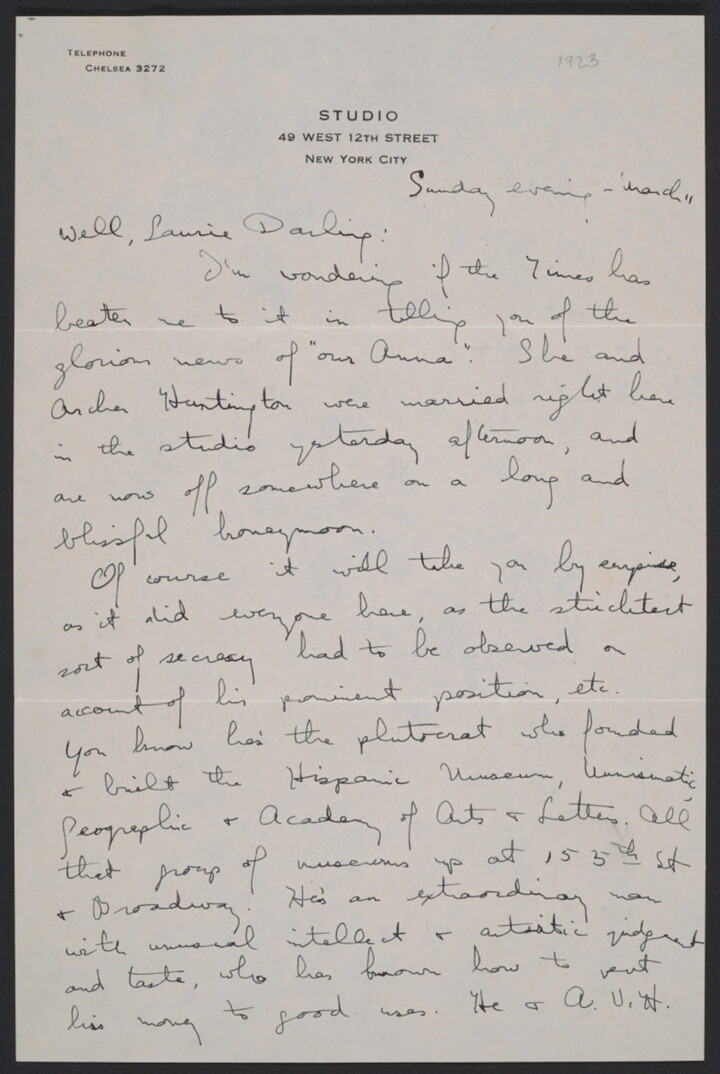 TELEPHONE
CHELSEA 3272
1923
STUDIO
49 WEST 12TH STREET
NEW YORK CITY
Sunday evening - March 11
Well, Laurie Darling:
I'm wondering if the Times has
beaten me to it in telling you of the
glorious news of "our Anna". She and
Archer Huntington were married right here
in the studio yesterday afternoon, and
are now off somewhere on a long and
blissful honeymoon.
Of course it will take you by surprise,
as it did everyone here, as the strichtest
sort of secrecy had to be observed on
account of his prominent position, etc.
You know he's the plutocrat who founded
+ built the Hispanic Museum, Numismatic,
Geographic + Academy of Arts + Letters. All
that group of museums up at 155th St
+ Broadway. He's an extraordinary man
with unusual intellect + artistic judgment
and taste, who has known how to put
his money to good uses. He + A. V. H.